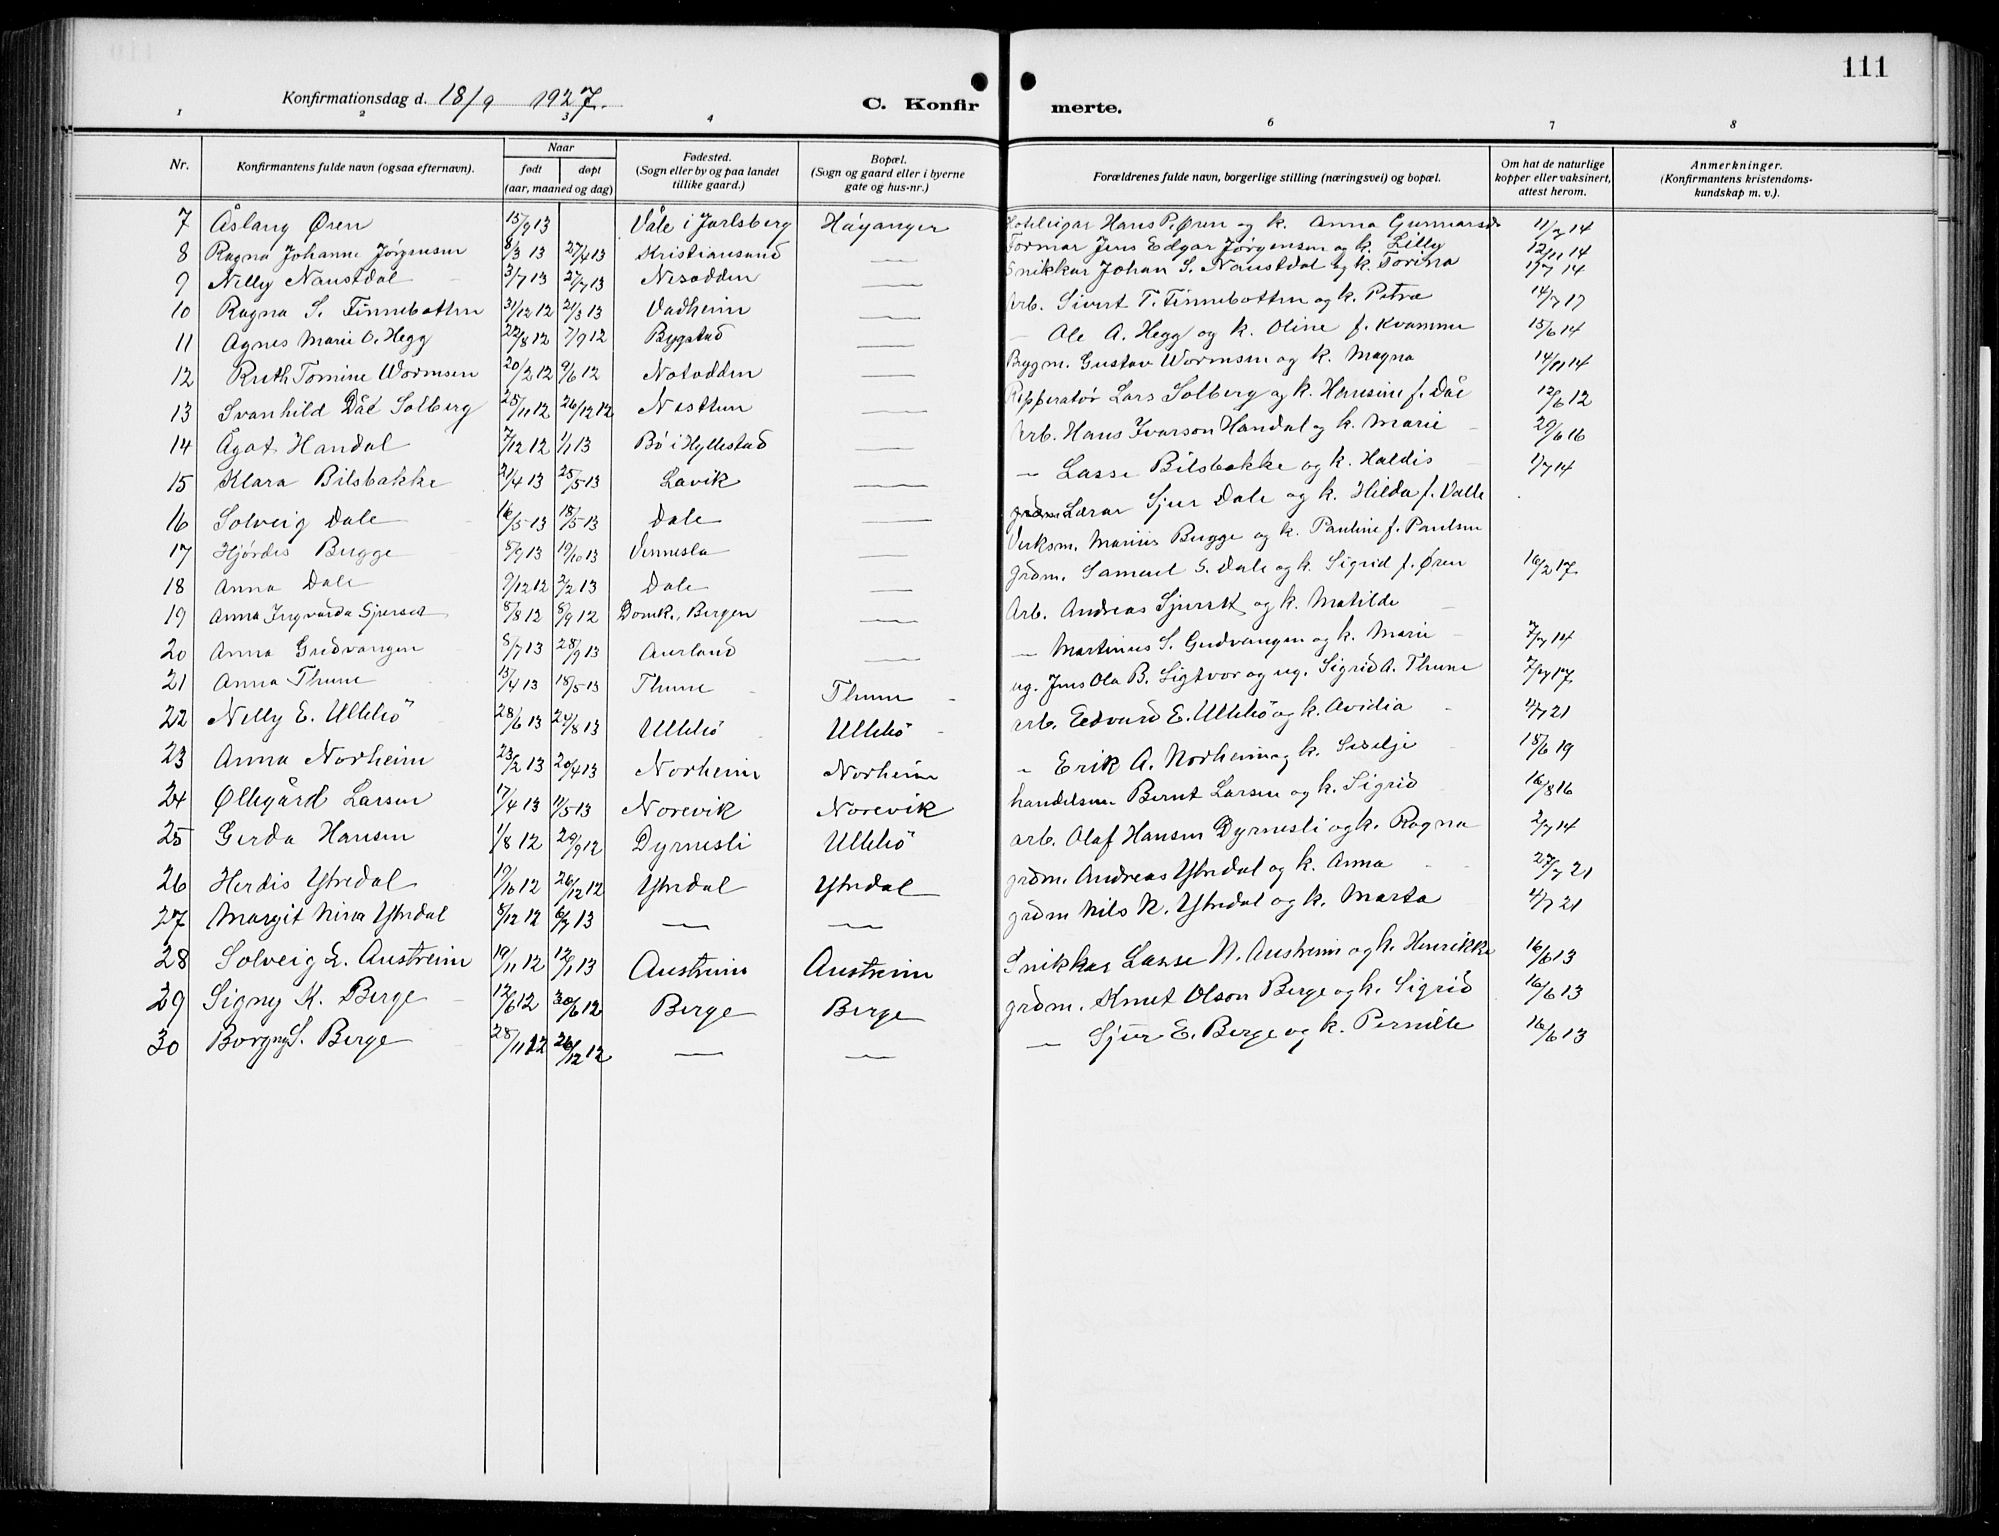 111
Konfirmationsdag d. 18/9 1927.
C. Konfir merte.
1 2 3 4 6 7 8
Nr. Konfirmantens fulde navn (ogsaa efternavn). Naar født døpt (aar, maaned og dag) Fødested. (Sogn eller by og paa landet tillike gaard.) Bopæl. (Sogn og gaard eller i byerne gate og hus-nr.) Forældrenes fulde navn, borgerlige stilling (næringsvei) og bopæl. Om hat de naturlige kopper eller vaksinert, attest herom. Anmerkninger. (Konfirmantens kristendoms- kundskap m. v.).
7 Åslaug Øren 15/9 13 Våle i Jarlsberg Høyanger Hotelleigar Hans P. Øren og k. Anna Gunnarsd. 11/7 14
8 Ragna Johanne Jørgensen 8/3 13 27/4 13 Kristiansund — Formar Jens Edgar Jørgensen og k. Lilly 12/11 14
9 Nelly Naustdal 3/7 13 27/7 13 Nesodden — Snikkar Johan S. Naustdal og k. Torina 14
10 Ragna S. Finnebotten 31/12 12 21/3 13 Vadheim — Arb. Sivert T. Finnebotten og k. Petra 14/7 17
11 Agnes Marie O. Hegg 22/8 12 7/9 12 Bygstad — — Ole A. Hegg og k. Oline f. Kvamme 15/6 14
12 Ruth Tomine Wormsen 20/2 12 9/6 12 Notodden — Bygm. Gustav Wormsen og k. Magna 14/11 14
13 Svanhild Dåe Solberg 25/11 12 26/12 12 Nesttun — Repperatør Lars Solberg og k. Hansine f. Dåe 12/6 12
14 Ågot Handal 7/12 12 1/1 13 Bø i Hyllestad — Arb. Hans Ivarson Handal og k. Marie 20/6 16
15 Klara Bilsbakke 21/4 13 25/5 13 Lavik — — Lasse Bilsbakke og k. Haldis 1/7 14
16 Solveig Dale 16/5 13 18/5 13 Dale — Lærar Sjur Dale og k. Hilda f. Valle
17 Hjørdis Bugge 8/9 13 19/10 13 Vennesla — Verksm. Marius Bugge og k. Pauline f. Paulsen
18 Anna Dale 9/12 12 2/2 13 Dale — grdm. Samuel S. Dale og k. Sigrid f. Øren 16/2 17.
19 Anna Ingvarda Sjurset 8/8 12 8/9 12 Domk., Bergen — Arb. Andreas Sjurset og k. Matilde
20 Anna Gudvangen 8/7 13 28/9 13 Aurland — — Martinus S. Gudvangen og k. Marie 7/7 14
21 Anna Thune 13/4 13 18/5 13 Thune Thune ug. Jens Ola B. Sigtvor og ug. Sigrid A. Thune 7/7 17
22 Nelly E. Ullebø 28/6 13 24/8 13 Ullebø Ullebø arb. Edvard E. Ullebø og k. Avidia 4/7 21
23 Anna Norheim 23/2 13 20/4 13 Norheim Norheim " Erik A. Norheim og k. Siselje 18/6 19
24 Øllegård Larsen 17/4 13 11/5 13 Norevik Norevik handelsm. Bernt Larsen og k. Sigrid 16/8 16
25 Gerda Hansen 1/8 12 29/9 12 Dyrnesli Ullebø arb. Olaf Hansen Dyrnesli og k. Ragna 2/7 14
26 Herdis Ytredal 19/10 12 26/12 12 Ytredal Ytredal grdm. Andreas Ytredal og k. Anna 27/7 21
27 Margit Nina Ytredal 8/12 12 6/2 13 — — grdm Nils N. Ytredal og k. Marta 4/7 21
28 Solveig L. Austreim 19/11 12 12/1 13 Austreim Austreim Snikkar Lasse N. Austreim og k. Henrikke 16/6 13
29 Signy K. Berge 12/6 12 30/6 12 Berge Berge grdm. Knut Olson Berge og k. Sigrid 16/6 13
30 Borgny S. Berge 28/11 12 26/12 12 — — — Sjur E. Berge og k. Pernille 16/6 13